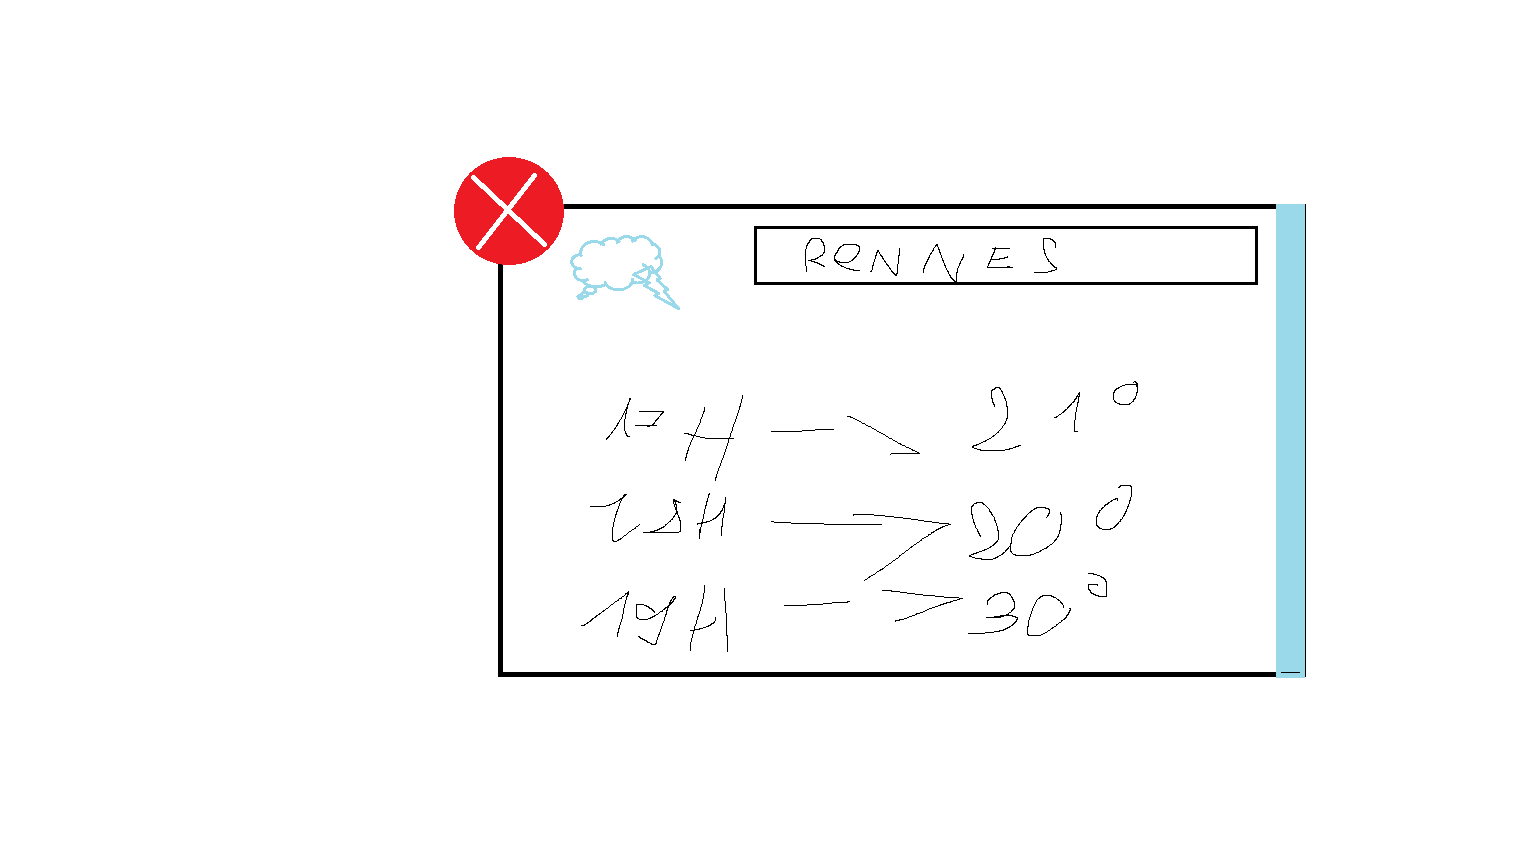 RENNES
17H → 21°
18H → 20°
19H → 30°